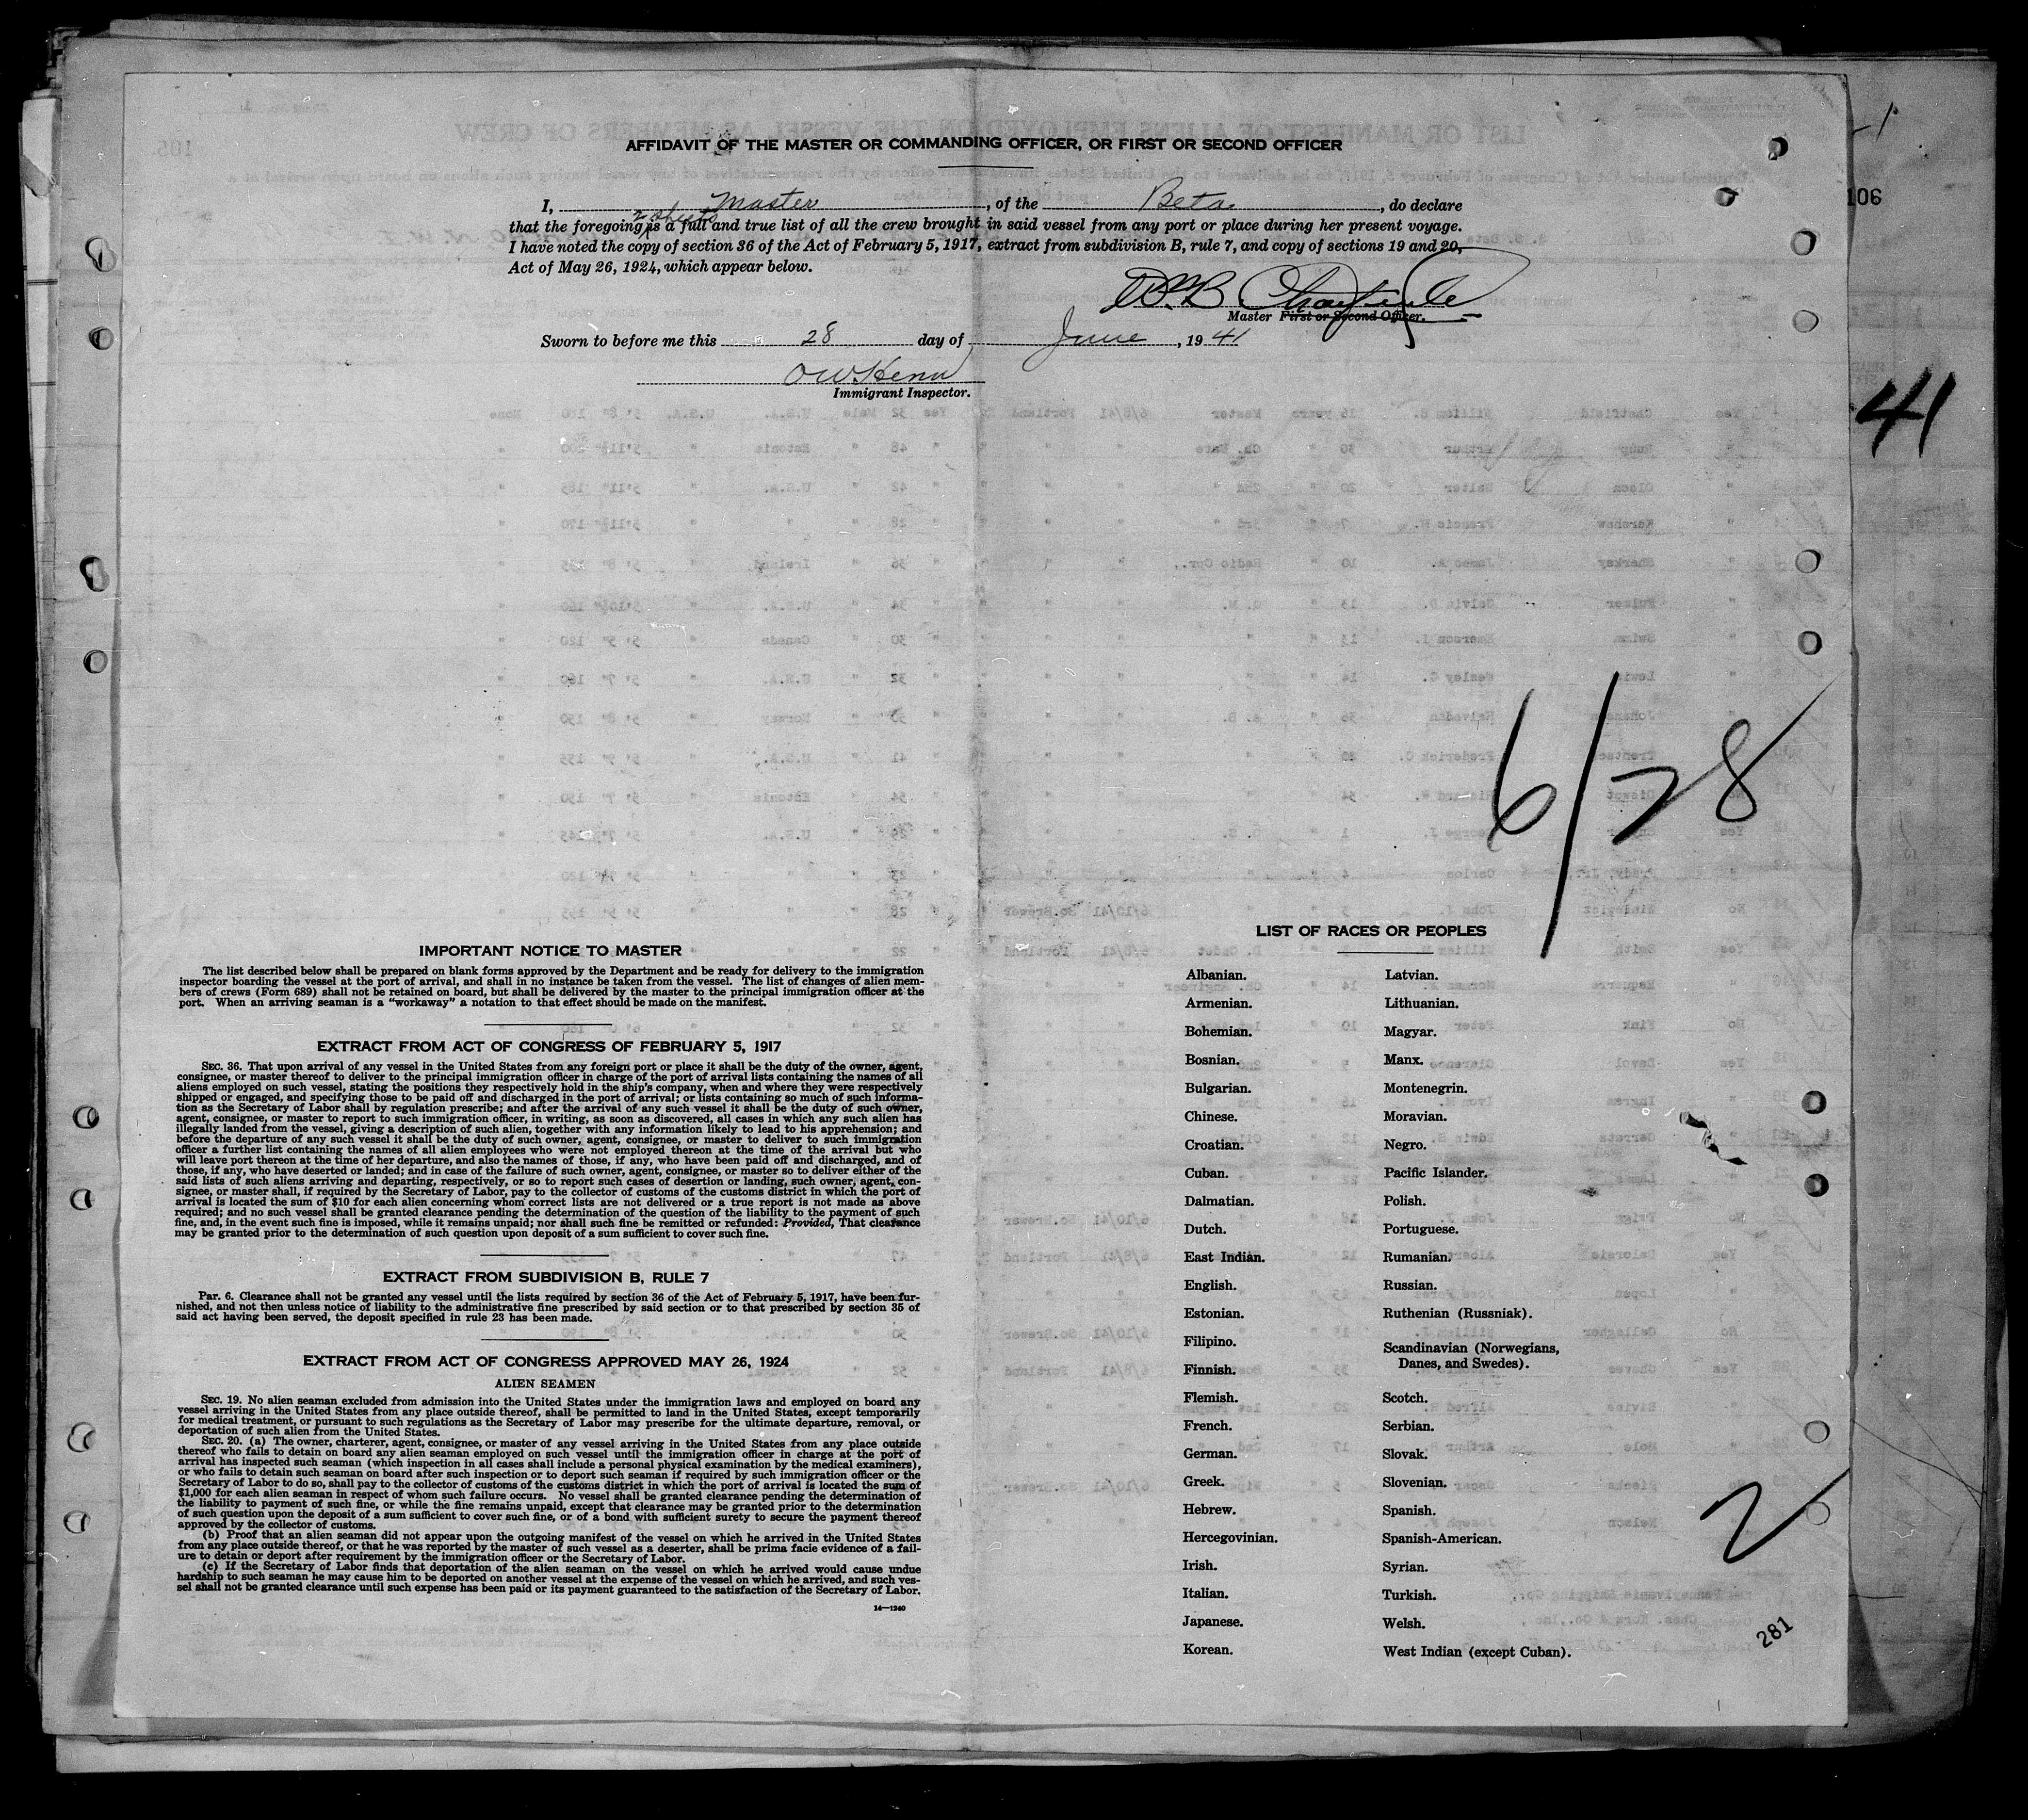 AFFIDAVIT OF THE MASTER OR COMMANDING OFFICER, OR FIRST OR SECOND OFFICER
I, Master, of the Beta, do declare
2 sheets
that the foregoing is a full and true list of all the crew brought in said vessel from any port or place during her present voyage.
I have noted the copy of section 36 of the Act of February 5, 1917, extract from subdivision B, rule 7, and copy of sections 19 and 20,
Act of May 26, 1924, which appear below.
Master First or Second Officer.
Sworn to before me this 28 day of June, 1941
Immigrant Inspector.
106
41
6/28
IMPORTANT NOTICE TO MASTER
The list described below shall be prepared on blank forms approved by the Department and be ready for delivery to the immigration
inspector boarding the vessel at the port of arrival, and shall in no instance be taken from the vessel. The list of changes of alien mem-
bers of crews (Form 689) shall not be retained on board, but shall be delivered by the master to the principal immigration officer at the
port. When an arriving seaman is a "workaway" a notation to that effect should be made on the manifest.
EXTRACT FROM ACT OF CONGRESS OF FEBRUARY 5, 1917
SEC. 36. That upon arrival of any vessel in the United States from any foreign port or place it shall be the duty of the owner, agent,
consignee, or master thereof to deliver to the principal immigration officer in charge of the port of arrival lists containing the names of all
aliens employed on such vessel, stating the positions they respectively hold in the ship's company, when and where they were respectively
shipped or engaged, and specifying those to be paid off and discharged in the port of arrival; or lists containing so much of such informa-
tion as the Secretary of Labor shall by regulation prescribe; and after the arrival of any such vessel it shall be the duty of such owner,
agent, consignee, or master to report to such immigration officer, in writing, as soon as discovered, all cases in which any such alien has
illegally landed from the vessel, giving a description of such alien, together with any information likely to lead to his apprehension; and
before the departure of any such vessel it shall be the duty of such owner, agent, consignee, or master to deliver to such immigration
officer a further list containing the names of all alien employees who were not employed thereon at the time of the arrival but who
will leave port thereon at the time of her departure, and also the names of those, if any, who have been paid off and discharged, and of
those, if any, who have deserted or landed; and in case of the failure of such owner, agent, consignee, or master so to deliver either of the
said lists of such aliens arriving and departing, respectively, or so to report such cases of desertion or landing, such owner, agent, con-
signee, or master shall, if required by the Secretary of Labor, pay to the collector of customs of the customs district in which the port of
arrival is located the sum of $10 for each alien concerning whom correct lists are not delivered or a true report is not made as above
required; and no such vessel shall be granted clearance pending the determination of the question of the liability to the payment of such
fine, and, in the event such fine is imposed, while it remains unpaid; nor shall such fine be remitted or refunded: Provided, That clearance
may be granted prior to the determination of such question upon deposit of a sum sufficient to cover such fine.
EXTRACT FROM SUBDIVISION B, RULE 7
Par. 6. Clearance shall not be granted any vessel until the lists required by section 36 of the Act of February 5, 1917, have been fur-
nished, and not then unless notice of liability to the administrative fine prescribed by said section or to that prescribed by section 35 of
said act having been served, the deposit specified in rule 23 has been made.
EXTRACT FROM ACT OF CONGRESS APPROVED MAY 26, 1924
ALIEN SEAMEN
SEC. 19. No alien seaman excluded from admission into the United States under the immigration laws and employed on board any
vessel arriving in the United States from any place outside thereof, shall be permitted to land in the United States, except temporarily
for medical treatment, or pursuant to such regulations as the Secretary of Labor may prescribe for the ultimate departure, removal, or
deportation of such alien from the United States.
SEC. 20. (a) The owner, charterer, agent, consignee, or master of any vessel arriving in the United States from any place outside
thereof who fails to detain on board any alien seaman employed on such vessel until the immigration officer in charge at the port of
arrival has inspected such seaman (which inspection in all cases shall include a personal physical examination by the medical examiners),
or who fails to detain such seaman on board after such inspection or to deport such seaman if required by such immigration officer or the
Secretary of Labor to do so, shall pay to the collector of customs of the customs district in which the port of arrival is located the sum of
$1,000 for each alien seaman in respect of whom such failure occurs. No vessel shall be granted clearance pending the determination of
the liability to payment of such fine, or while the fine remains unpaid, except that clearance may be granted prior to the determination
of such question upon the deposit of a sum sufficient to cover such fine, or of a bond with sufficient surety to secure the payment thereof
approved by the collector of customs.
(b) Proof that an alien seaman did not appear upon the outgoing manifest of the vessel on which he arrived in the United States
from any place outside thereof, or that he was reported by the master of such vessel as a deserter, shall be prima facie evidence of a fail-
ure to detain or deport after requirement by the immigration officer or the Secretary of Labor.
(c) If the Secretary of Labor finds that deportation of the alien seaman on the vessel on which he arrived would cause undue
hardship to such seaman he may cause him to be deported on another vessel at the expense of the vessel on which he arrived, and such ves-
sel shall not be granted clearance until such expense has been paid or its payment guaranteed to the satisfaction of the Secretary of Labor.
14—1240
LIST OF RACES OR PEOPLES
Albanian.
Armenian.
Bohemian.
Bosnian.
Bulgarian.
Chinese.
Croatian.
Cuban.
Dalmatian.
Dutch.
East Indian.
English.
Estonian.
Filipino.
Finnish.
Flemish.
French.
German.
Greek.
Hebrew.
Hercegovinian.
Irish.
Italian.
Japanese.
Korean.
Latvian.
Lithuanian.
Magyar.
Manx.
Montenegrin.
Moravian.
Negro.
Pacific Islander.
Polish.
Portuguese.
Rumanian.
Russian.
Ruthenian (Russniak).
Scandinavian (Norwegians,
Danes, and Swedes).
Scotch.
Serbian.
Slovak.
Slovenian.
Spanish.
Spanish-American.
Syrian.
Turkish.
Welsh.
West Indian (except Cuban).
2
281